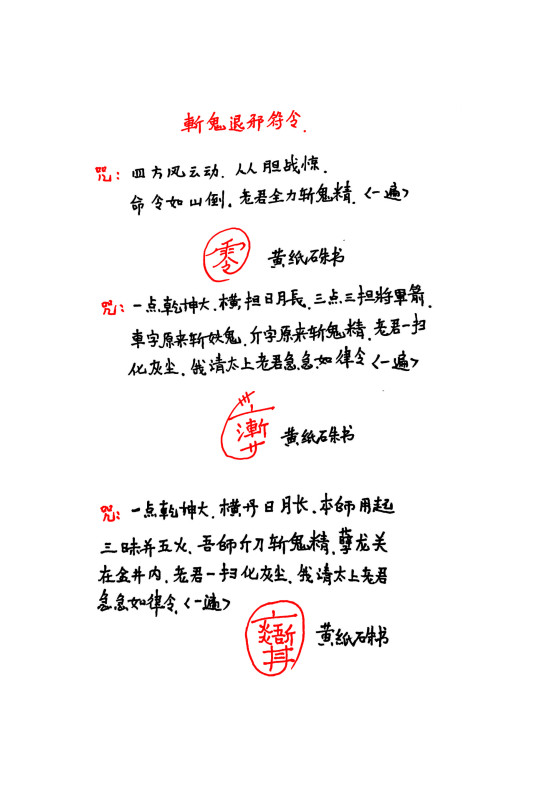 斬鬼退邪符令.
咒：四方风云动.人人胆战惊.
命令如山倒.老君全力斩鬼精.<一遍>
零
黄纸硃书
咒：一点乾坤大.横担日月長.三点三担將軍箭.
車字原来斩妖鬼.斤字原来斩鬼精.老君一扫
化灰尘.俄请太上老君急急如律令<一遍>
黄纸硃书
咒：一点乾坤大.横丹日月长.本师用起
三昧并五火.吾師斤刀斩鬼精.孽龙关
在金井内.老君一扫化灰尘.俄请太上老君
急急如律令.<一遍>
黄纸硃书